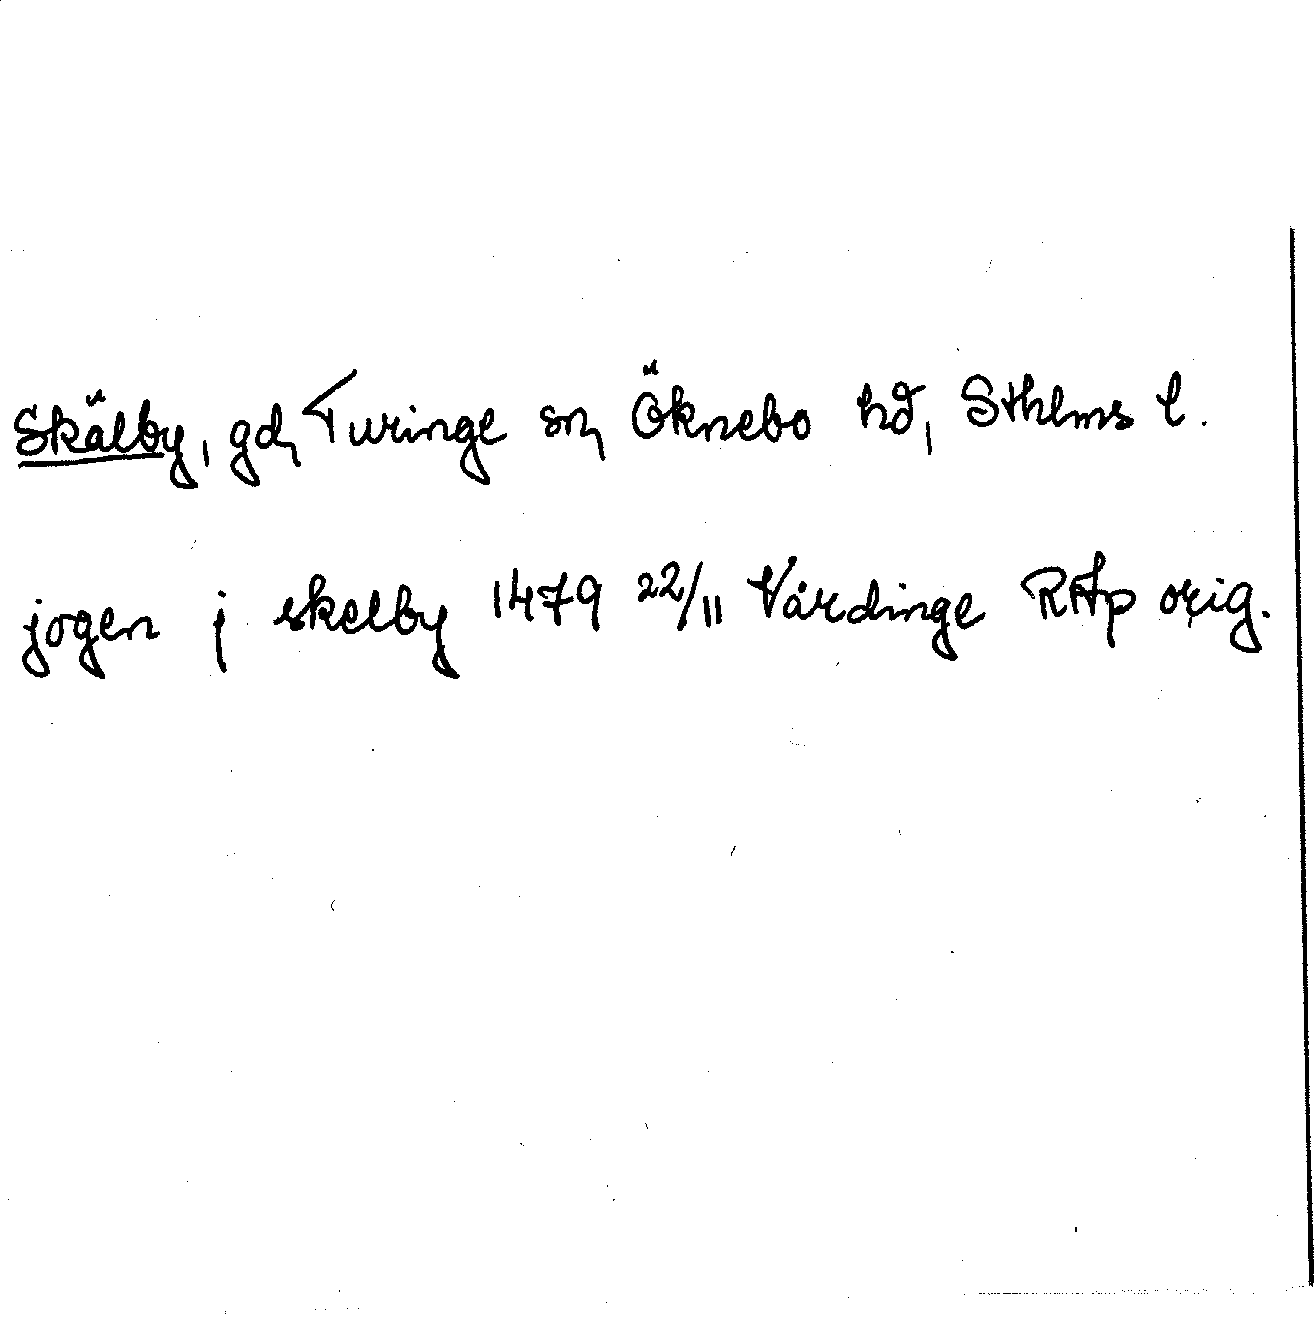 Skälby, gd, Turinge sn, Öknebo hd, Sthlms l.
jogen j skelby 1479 22/11 Vårdinge RAp orig.